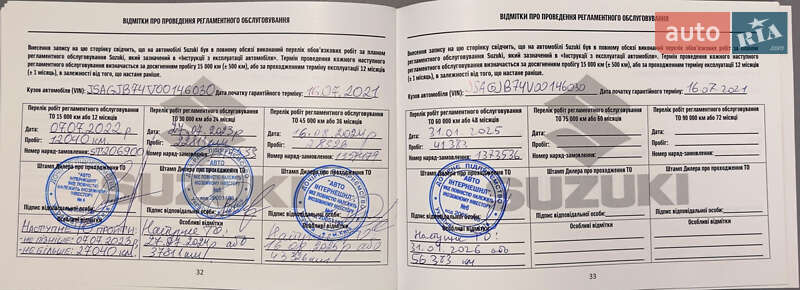 ВІДМІТКИ ПРО ПРОВЕДЕННЯ РЕГЛАМЕНТНОГО ОБСЛУГОВУВАННЯ
Внесення запису на цю сторінку свідчить, що на автомобілі Suzuki був в повному обсязі виконаний перелік обов'язкових робіт за планом
регламентного обслуговування Suzuki, який зазначений в «Інструкції з експлуатації автомобіля». Терміни проведення кожного наступного
регламентного обслуговування визначаються за досягненням пробігу 15 000 км (± 500 км), або за проходженням терміну експлуатації 12 місяців
(± 1 місяць), в залежності від того, що настане раніше.
Кузов автомобіля (VIN): JSAGJB74V00146030 Дата початку гарантійного терміну: 16.07.2021
Перелік робіт регламентного обслуговування ТО 15 000 км або 12 місяців
Дата: 07.07.2022р
Пробіг: 12040 км.
Номер наряд-замовлення: ST206900
Штамп Дилера про проходження ТО
"АВТО ІНТЕРНЕШНЛ" ЯКЕ ПОВНІСТЮ НАЛЕЖИТЬ ІНОЗЕМНОМУ ІНВЕСТОРУ
Підпис відповідальної особи:
Особливі відмітки
Наступне ТО пройти:
не пізніше: 07.07.2023р.
не більше: 27040 км.
Перелік робіт регламентного обслуговування ТО 30 000 км або 24 місяців
Дата:
Пробіг:
Номер наряд-замовлення:
Штамп Дилера про проходження ТО
"АВТО ІНТЕРНЕШНЛ" ЯКЕ ПОВНІСТЮ НАЛЕЖИТЬ ІНОЗЕМНОМУ ІНВЕСТОРУ
Підпис відповідальної особи:
Особливі відмітки
Наступне ТО:
27.07.2024р або
Перелік робіт регламентного обслуговування ТО 45 000 км або 36 місяців
Дата: 16.08.2024р
Пробіг:
Номер наряд-замовлення:
Штамп Дилера про проходження ТО
"АВТО ІНТЕРНЕШНЛ" ЯКЕ ПОВНІСТЮ НАЛЕЖИТЬ ІНОЗЕМНОМУ ІНВЕСТОРУ
Особливі відмітки
32
SUZUKI
ВІДМІТКИ ПРО ПРОВЕДЕННЯ РЕГЛАМЕНТНОГО ОБСЛУГОВУВАННЯ
Внесення запису на цю сторінку свідчить, що на автомобілі Suzuki був в повному обсязі виконаний перелік обов'язкових робіт за планом
регламентного обслуговування Suzuki, який зазначений в «Інструкції з експлуатації автомобіля». Терміни проведення кожного наступного
регламентного обслуговування визначаються за досягненням пробігу 15 000 км (± 500 км), або за проходженням терміну експлуатації 12 місяців
(± 1 місяць), в залежності від того, що настане раніше.
Кузов автомобіля (VIN): JSAGJB74V00146030 Дата початку гарантійного терміну: 16.07.2021
Перелік робіт регламентного обслуговування ТО 60 000 км або 48 місяців
Дата: 31.01.2025
Пробіг: 41383
Номер наряд-замовлення: 1373536
Штамп Дилера про проходження ТО
"АВТО ІНТЕРНЕШНЛ" ЯКЕ ПОВНІСТЮ НАЛЕЖИТЬ ІНОЗЕМНОМУ ІНВЕСТОРУ
Підпис відповідальної особи:
Особливі відмітки
Наступне ТО:
31.01.2026 або
56383 км
Перелік робіт регламентного обслуговування ТО 75 000 км або 60 місяців
Дата:
Пробіг:
Номер наряд-замовлення:
Штамп Дилера про проходження ТО
Підпис відповідальної особи:
Особливі відмітки
Перелік робіт регламентного обслуговування ТО 90 000 км або 72 місяців
Дата:
Пробіг:
Номер наряд-замовлення:
Штамп Дилера про проходження ТО
Підпис відповідальної особи:
Особливі відмітки
33
SUZUKI
AUTO RIA